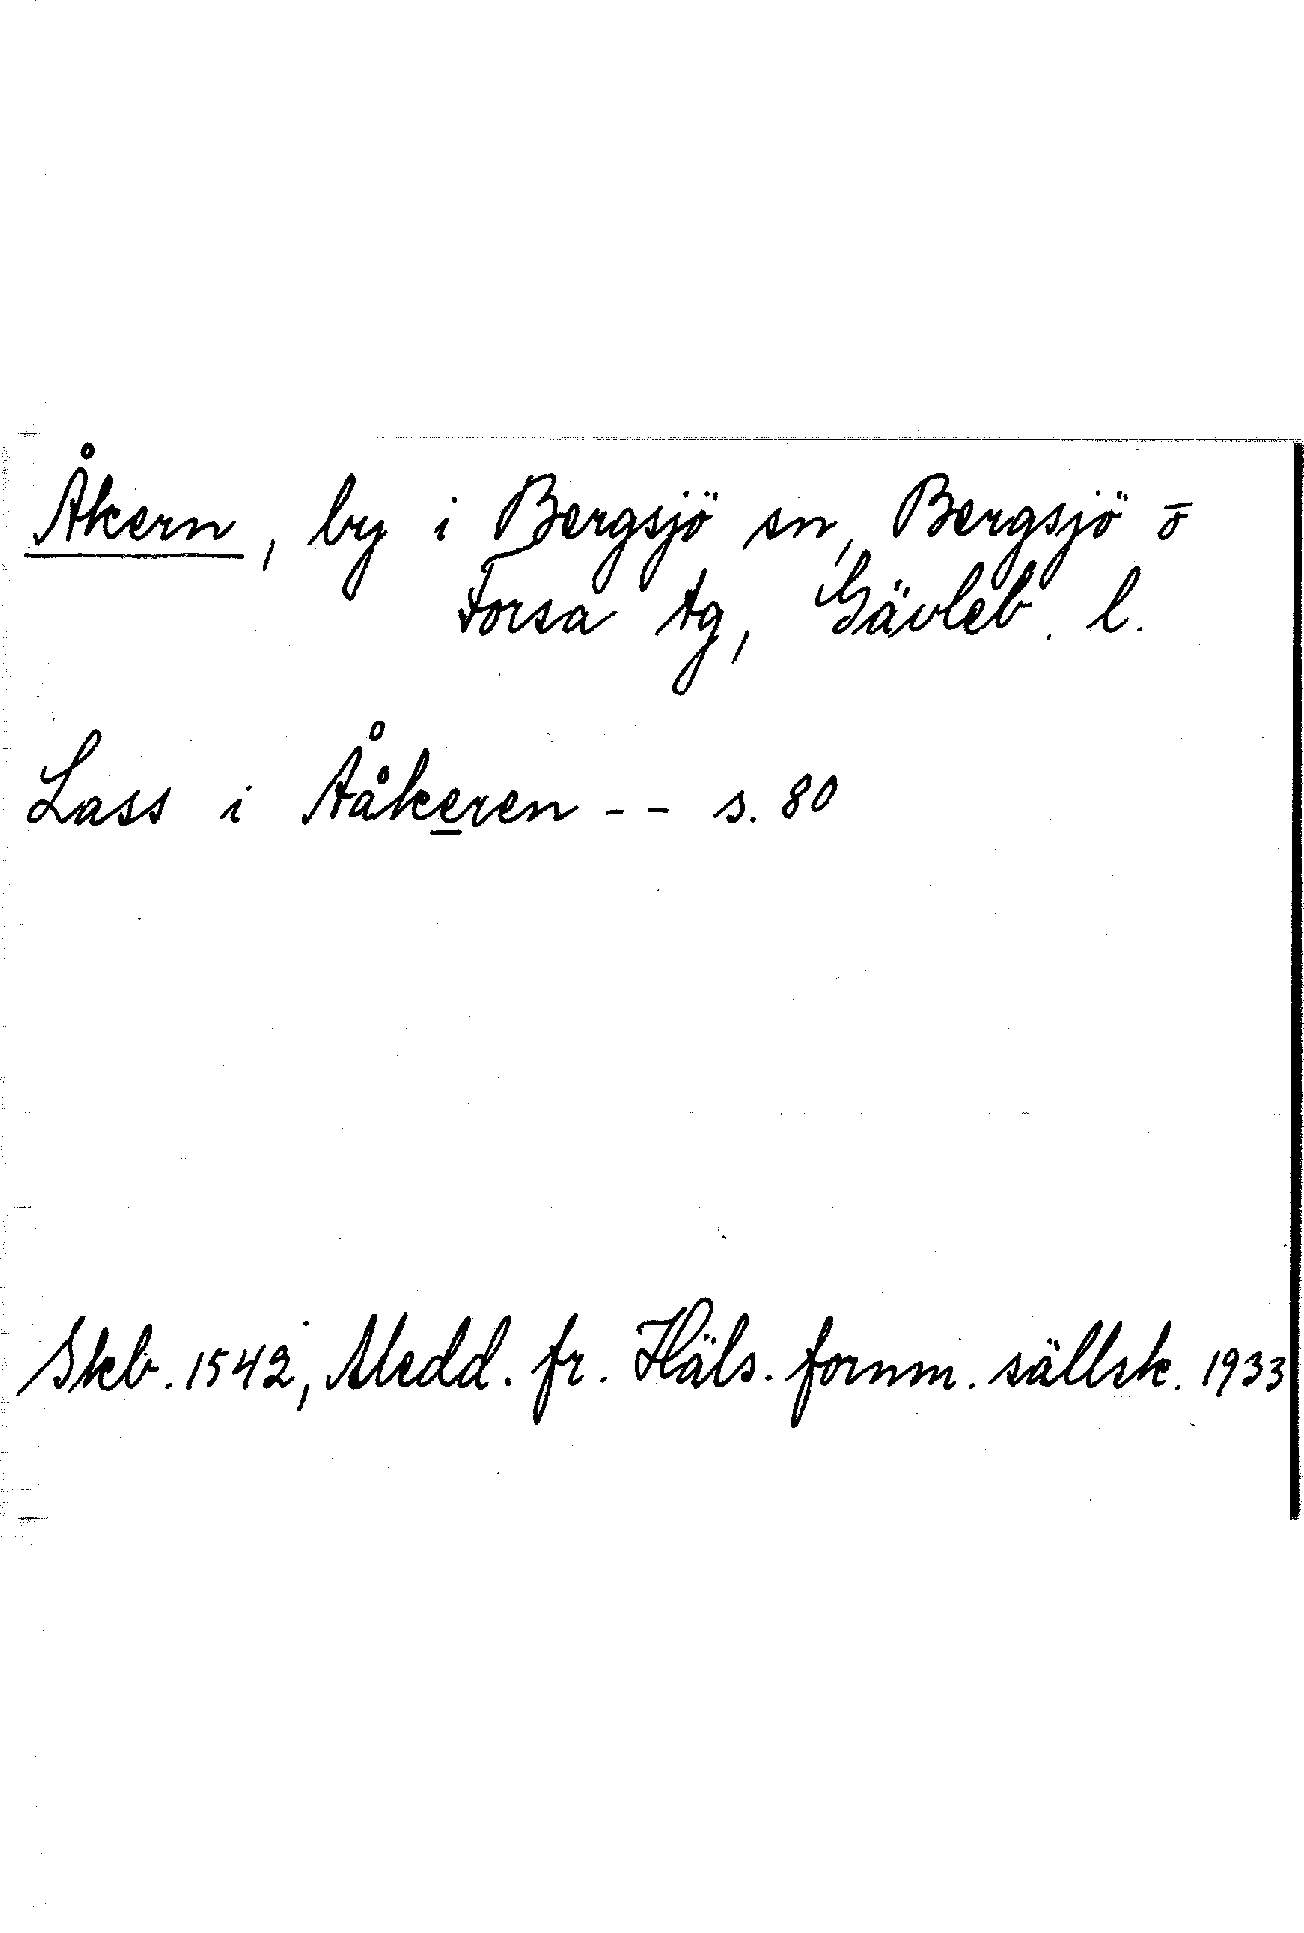 Åkern, by i Bergsjö sn, Bergsjö o
Forsa tg, Gävleb. l.
Lass i Ååkeren -- s. 80
Skb. 1542, Medd. fr. Häls. fornm. sällsk. 1933